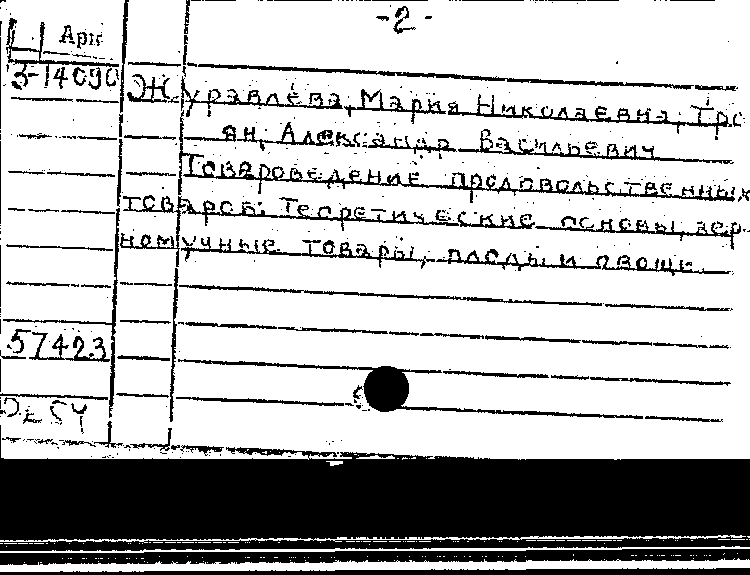 -2-
Арк
3-14090
Журавлева, Мария Николаевна, Тро
ян, Александр Васильевич
Товароведение продовольственных
товаров: Теоретические основы, зер-
номучные товары, плоды и овощи.
57423